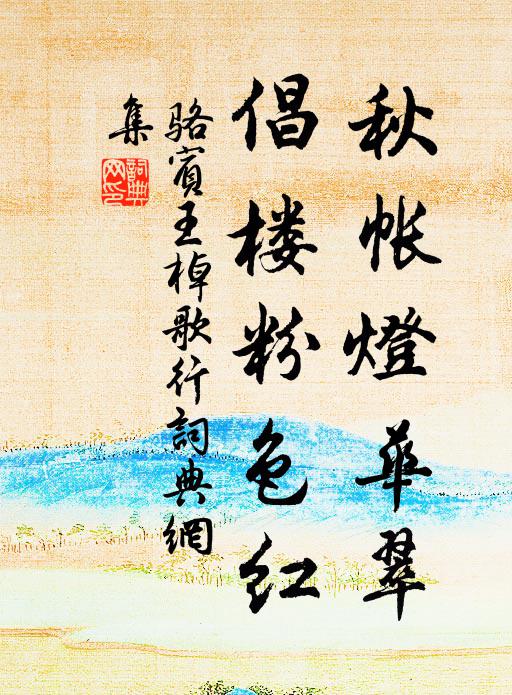 秋帐燈華翠
倡楼粉色红
骆賓王棹歌行詞典網
集
詞典网印